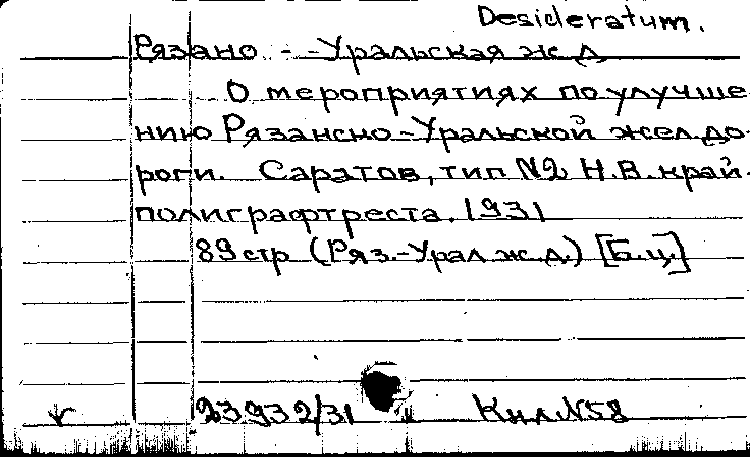 Desideratum.
Рязано - -Уральская ж.д
О мероприятиях по улучше
нию Рязанско-Уральской жел.до-
роги. Саратов, тип №2 Н.В.край.
полиграфтреста. 1931
89 стр (Ряз.-Урал ж.д.) [Б.ц.]
23932/31 Кн.л.№58